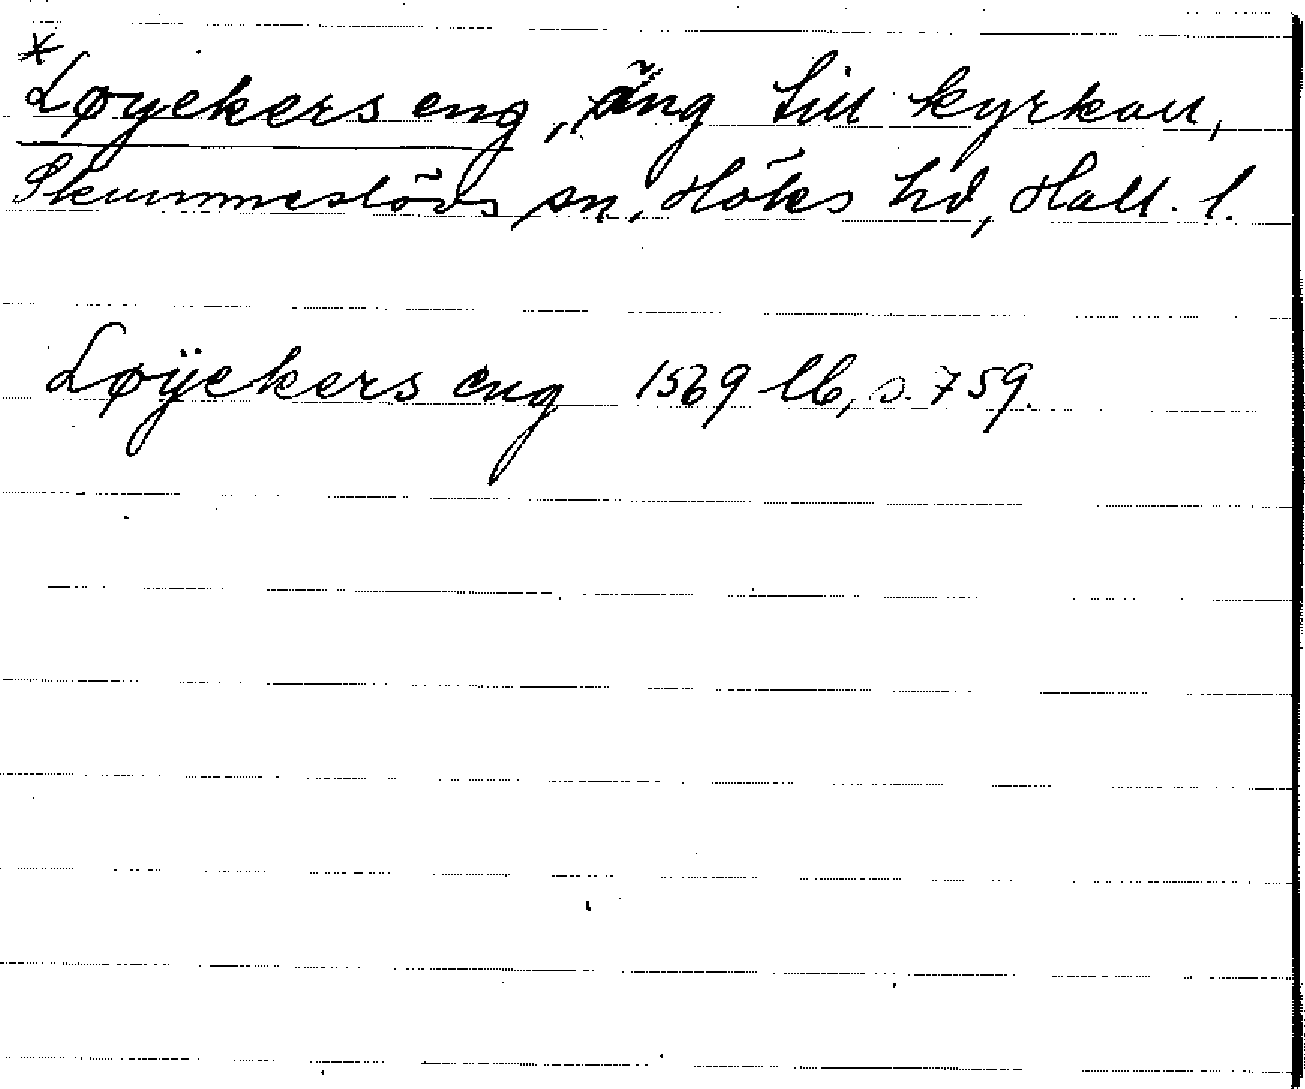 * Løyekers eng, äng till kyrkan,
Skummeslövs sn, Höks hd, Hall. l.
Løÿekers eng 1569 lb, s. 759.